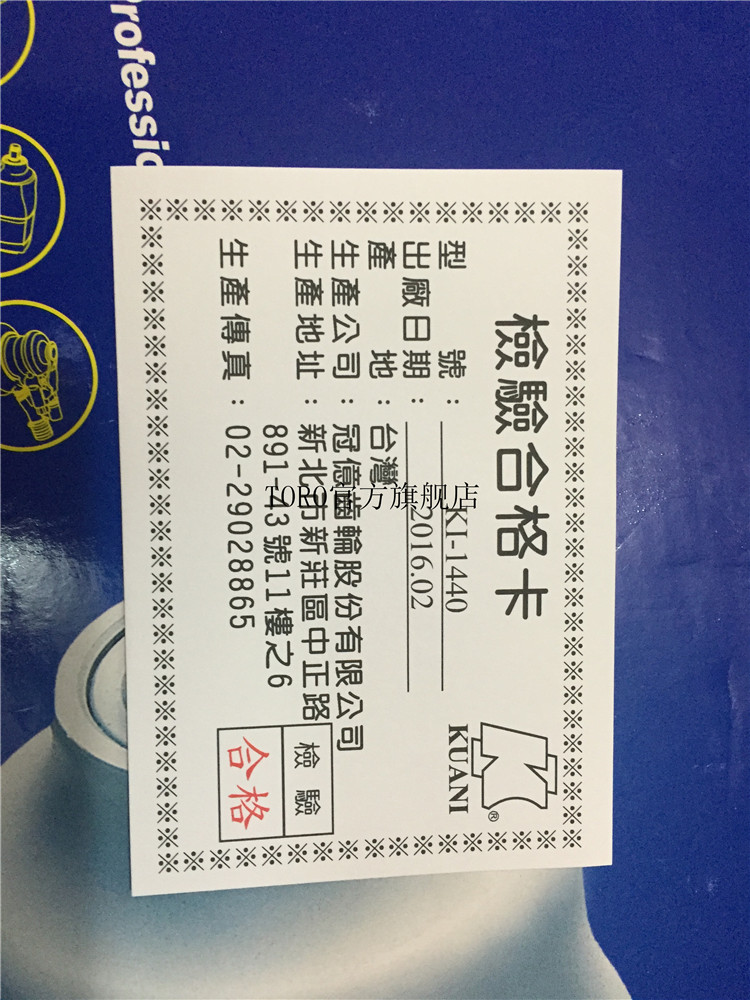 Professio
檢驗合格卡
型號：KI-1440
出廠日期：2016.02
產地：台灣
生產公司：冠億齒輪股份有限公司
生產地址：新北市新莊區中正路
891-43號11樓之6
生產傳真：02-29028865
KUANI
®
檢驗
合格
TORO官方旗舰店